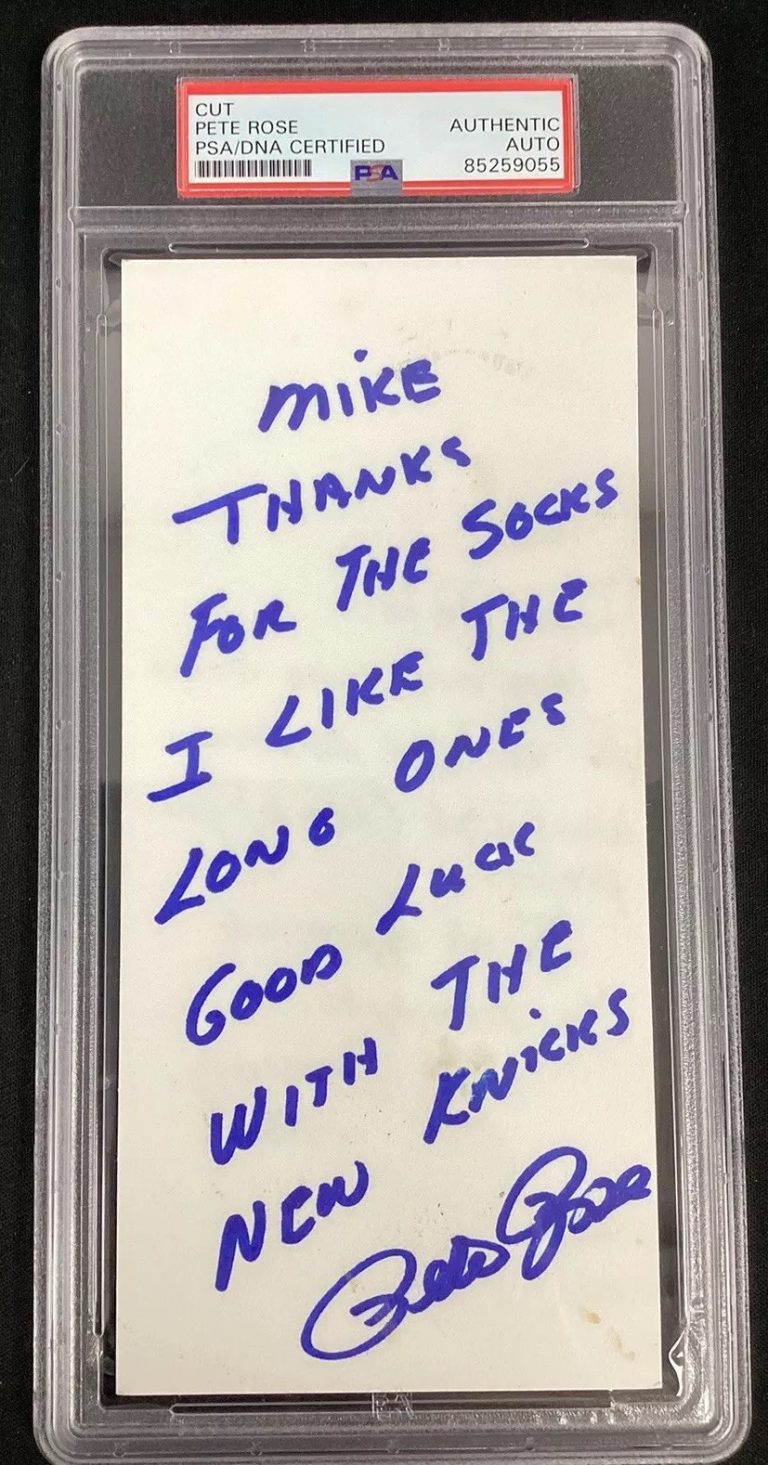 CUT
PETE ROSE
PSA/DNA CERTIFIED
AUTHENTIC
AUTO
85259055
PSA
MIKE
THANKS
FOR THE SOCKS
I LIKE THE
LONG ONES
GOOD LUCK
WITH THE
NEW KNICKS
Pete Rose